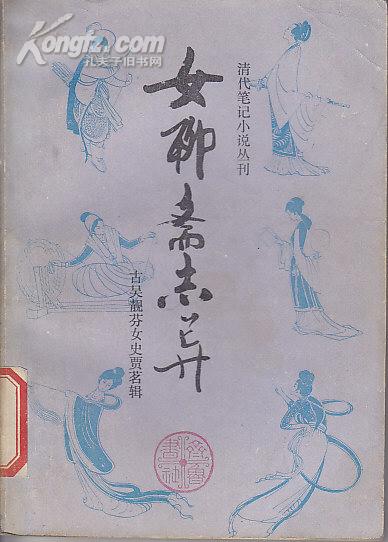 Kongfz.com
孔夫子旧书网
清代笔记小说丛刊
女聊斋志异
古吴靓芬女史贾茗辑
齐鲁书社